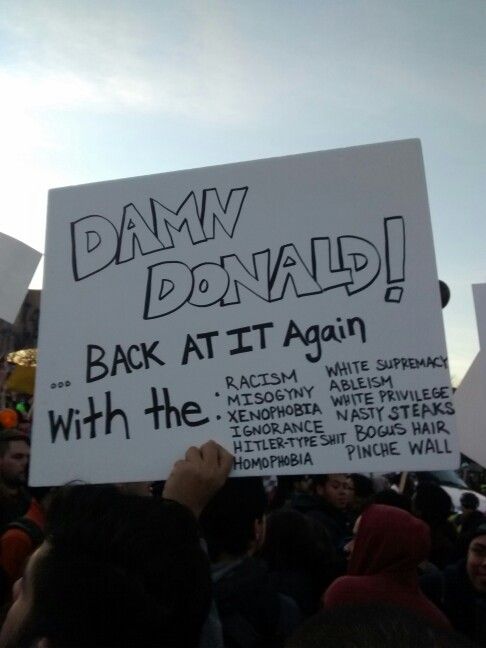 DAMN
DONALD!
... BACK AT IT Again
With the:
RACISM
MISOGYNY
XENOPHOBIA
IGNORANCE
HITLER-TYPE SHIT
HOMOPHOBIA
WHITE SUPREMACY
ABLEISM
WHITE PRIVILEGE
NASTY STEAKS
BOGUS HAIR
PINCHE WALL